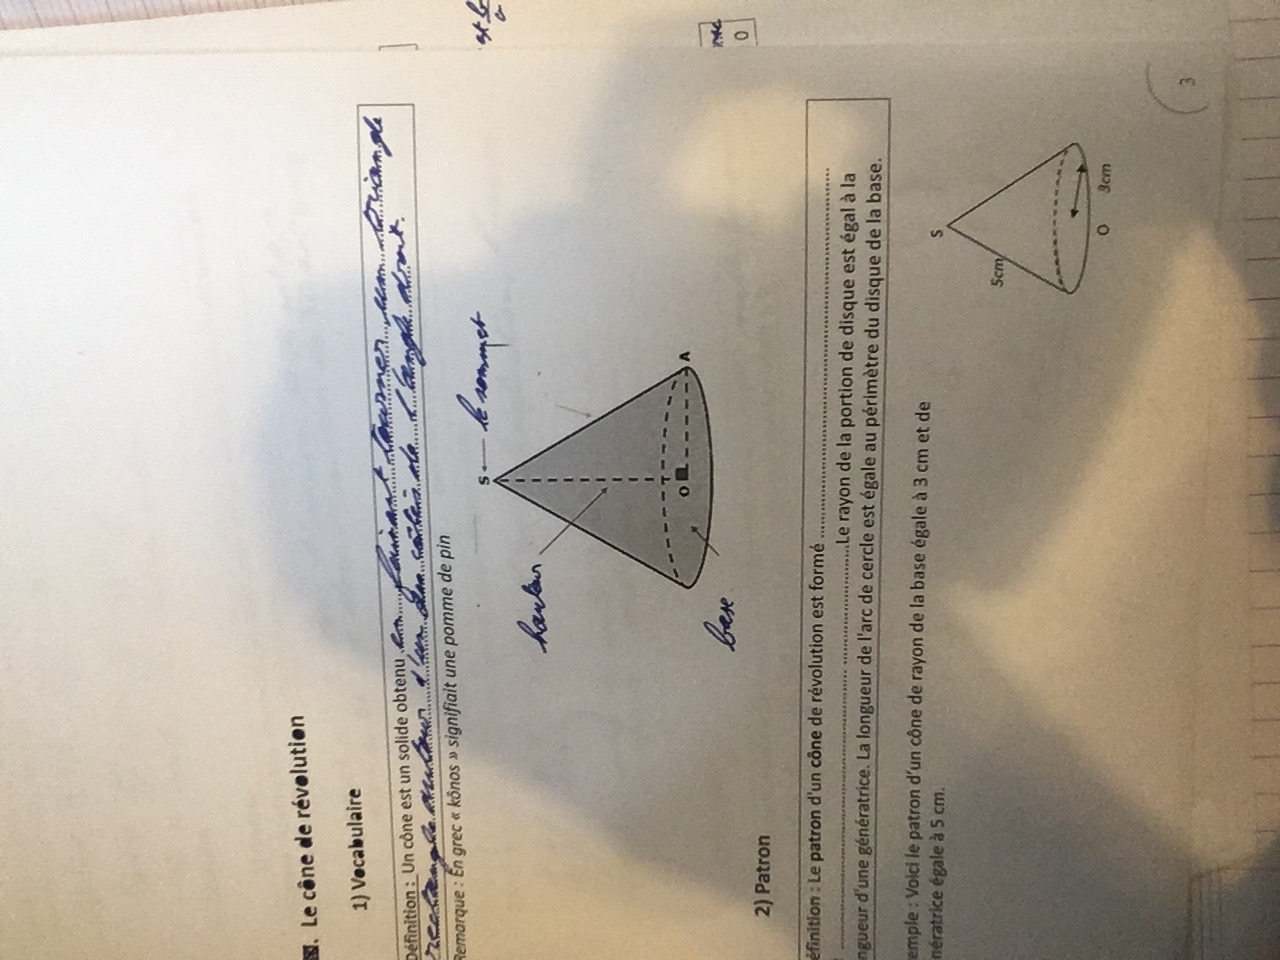 . Le cône de révolution
1) Vocabulaire
Définition : Un cône est un solide obtenu en faisant tourner un triangle
rectangle autour d'un des côtés de l'angle droit.
Remarque : En grec « kônos » signifiait une pomme de pin
S
le sommet
hauteur
O
A
base
2) Patron
éfinition : Le patron d'un cône de révolution est formé
Le rayon de la portion de disque est égal à la
ngueur d'une génératrice. La longueur de l'arc de cercle est égale au périmètre du disque de la base.
emple : Voici le patron d'un cône de rayon de la base égale à 3 cm et de
nératrice égale à 5 cm.
S
5cm
O
3cm
3
0